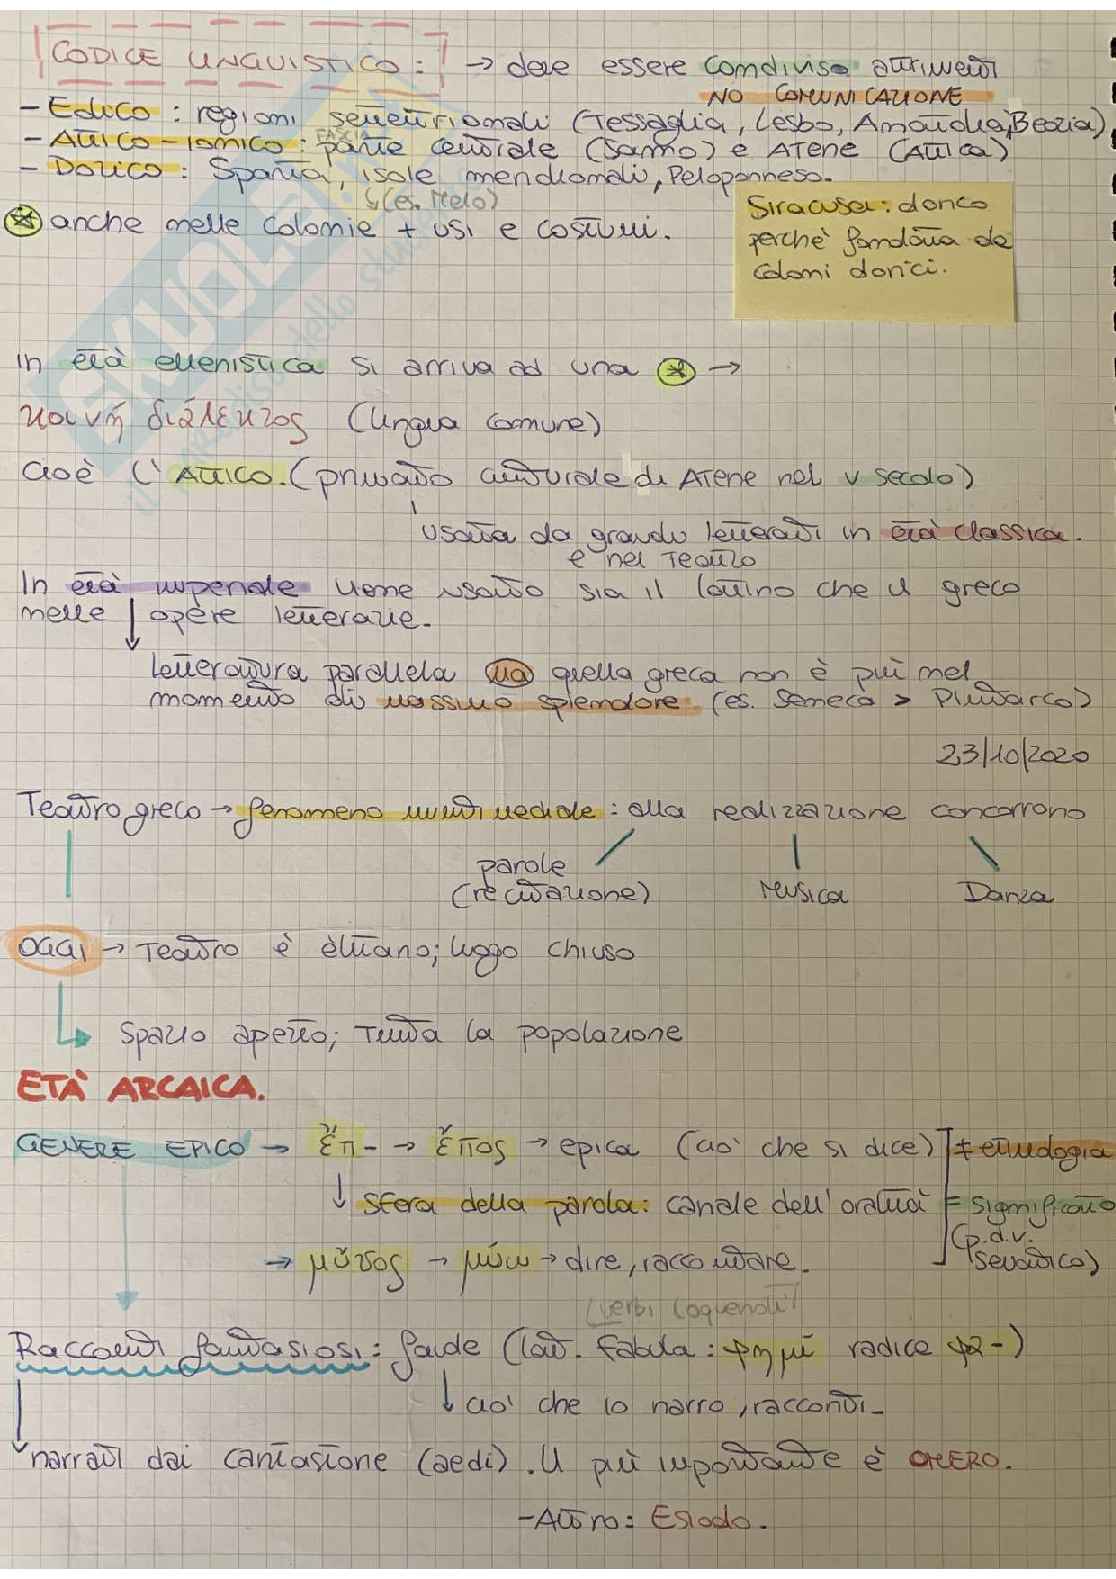 CODICE LINGUISTICO: → deve essere condiviso altrimenti
NO COMUNICAZIONE
- Eolico: regioni settentrionali (Tessaglia, Lesbo, Beozia)
- Attico-ionico: parte centrale (Samo) e Atene (Attica)
FASCIA
- Dorico: Sparta, isole meridionali, Peloponneso.
↳(es. Melo)
anche nelle colonie + usi e costumi.
Siracusa: dorica
perchè fondata da
coloni dorici.
In età ellenistica si arriva ad una * →
κοινή διάλεκτος (lingua comune)
cioè l'Attico. (primato culturale di Atene nel V secolo)
usata da grandi letterati in età classica.
e nel Teatro
In età imperiale viene usato sia il latino che il greco
nelle opere letterarie.
letteratura parallela ma quella greca non è più nel
momento di massimo splendore (es. Seneca > Plutarco)
23/10/2020
Teatro greco → fenomeno multimediale: alla realizzazione concorrono
parole
(recitazione)
Musica
Danza
OGGI → Teatro è elitario; luogo chiuso
Spazio aperto; Tutta la popolazione
ETÀ ARCAICA.
GENERE EPICO → ἔπ- → ἔπος → epica (ciò che si dice) ≠ etimologia
↓ sfera della parola: canale dell'oralità = significato
(p.d.v.
semantico)
→ μῦθος → μύω → dire, raccontare.
(verbi loquendi)
Racconti fantasiosi: fiabe (lat. Fabula: φημί radice φα-)
↓ ciò che io narro, racconti.
narrati dai cantastorie (aedi). Il più importante è OMERO.
- Altro: Esiodo.